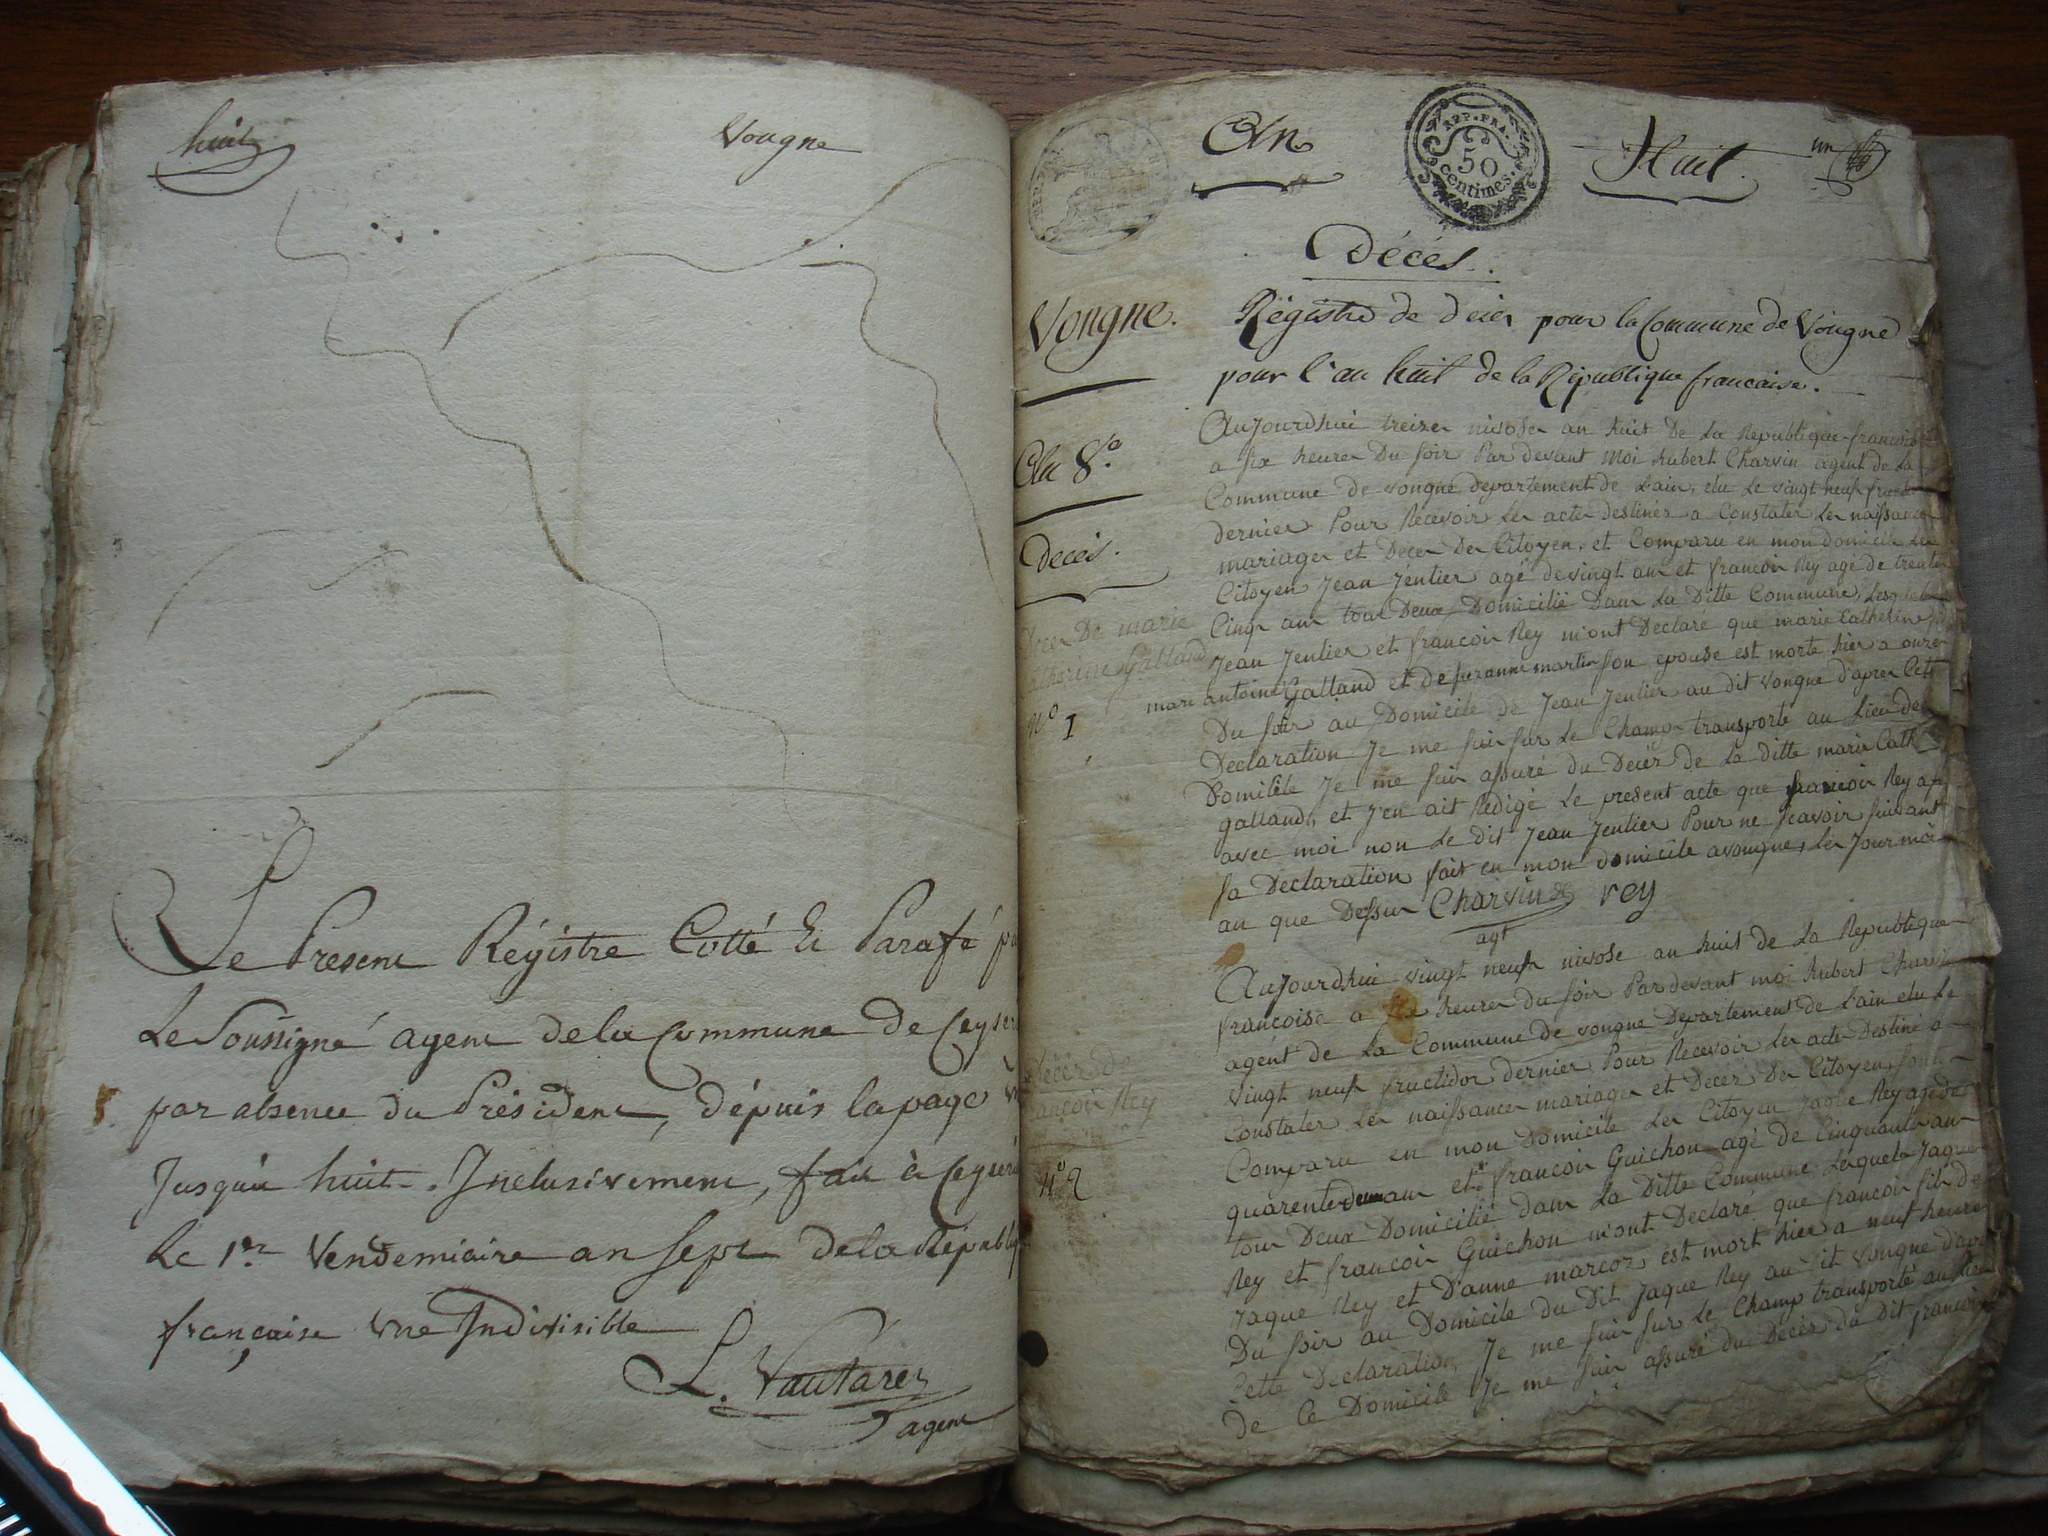 huit
Vougne
Le Present Régistre Cotté Et Parafé
Le Soussigné agent de la Commune de
par absence du Président, dépuis la page
Jusqu'à huit. Inclusivement, fait à
Le 1er Vendemiaire an Sept de la
française une Indivisible
L. Vautarez
agent
An
REP. FRA.
50
centimes.
Huit
un
Décés.
Vongne.
Régistre de décés pour la Commune de Vougne
pour l'an huit de la République francaise.
An 8e.
Decés.
Aujourdhui treizer nivoser an huit De La Republique
a six heurer Du soir Par devant Moi hubert Charvin agent de La
Commune de vongne departement de Lain, elu Le vingt neuf
dernier Pour Recevoir Les acter destiner a Constater Les naissancer
mariager et Decer Des Citoyen, et Comparu en mon domicile
Citoyen Jean Jentier agé de vingt an et francoir Rey agé de
Cinq an tour Deux Domicilié Dans La Ditte Commune,
Jean Jentier et francoir Rey m'ont Declaré que marie Catherine
Decer De marie
Catherine Galland
antoine Galland et de suzanne martin son epouse est morte hier a onze
No 1
Du soir au Domicile de Jean Jentier au dit vongne d'apres
Declaration Je me suis sur Le Champ transporté au Lieu de
Domicile Je me suis assuré du Decer de La ditte marie
galland, et J'en ait Redigé Le present acte que francoir Rey a
avec moi non Le dit Jean Jentier Pour ne scavoir suivant
sa Declaration fait en mon domicile a vougne, Les Jour moi
an que Dessur Charvin rey
agt
Aujourdhui vingt neuf nivose an huit de La Republique
francoise a six heurer du soir Par devant moi hubert
agent de La Commune de vongne Departement de Lain elu Le
vingt neuf fructidor dernier Pour Recevoir Les acte Destiné a
Constater Les naissancer mariager et Decer Des Citoyen,
Decer de
francoir Rey
Comparu en mon Domicile Les Citoyen Jaque Rey agé de
quarente deux an et francoir Guichon agé de Cinquante an
No 2
tour Deux Domicilié dans La Ditte Commune Lequele Jaque
Rey et francoir Guichon m'ont Declaré que francoir fils de
Jaque Rey et D'anne marcoz, est mort hier a neuf heurer
Du soir au Domicile du Dit Jaque Rey au dit vongne
Cette Declaration, Je me suis sur Le Champ transporté au Lieu
de Ce Domicile Je me suis assuré du Décés du Dit francoir